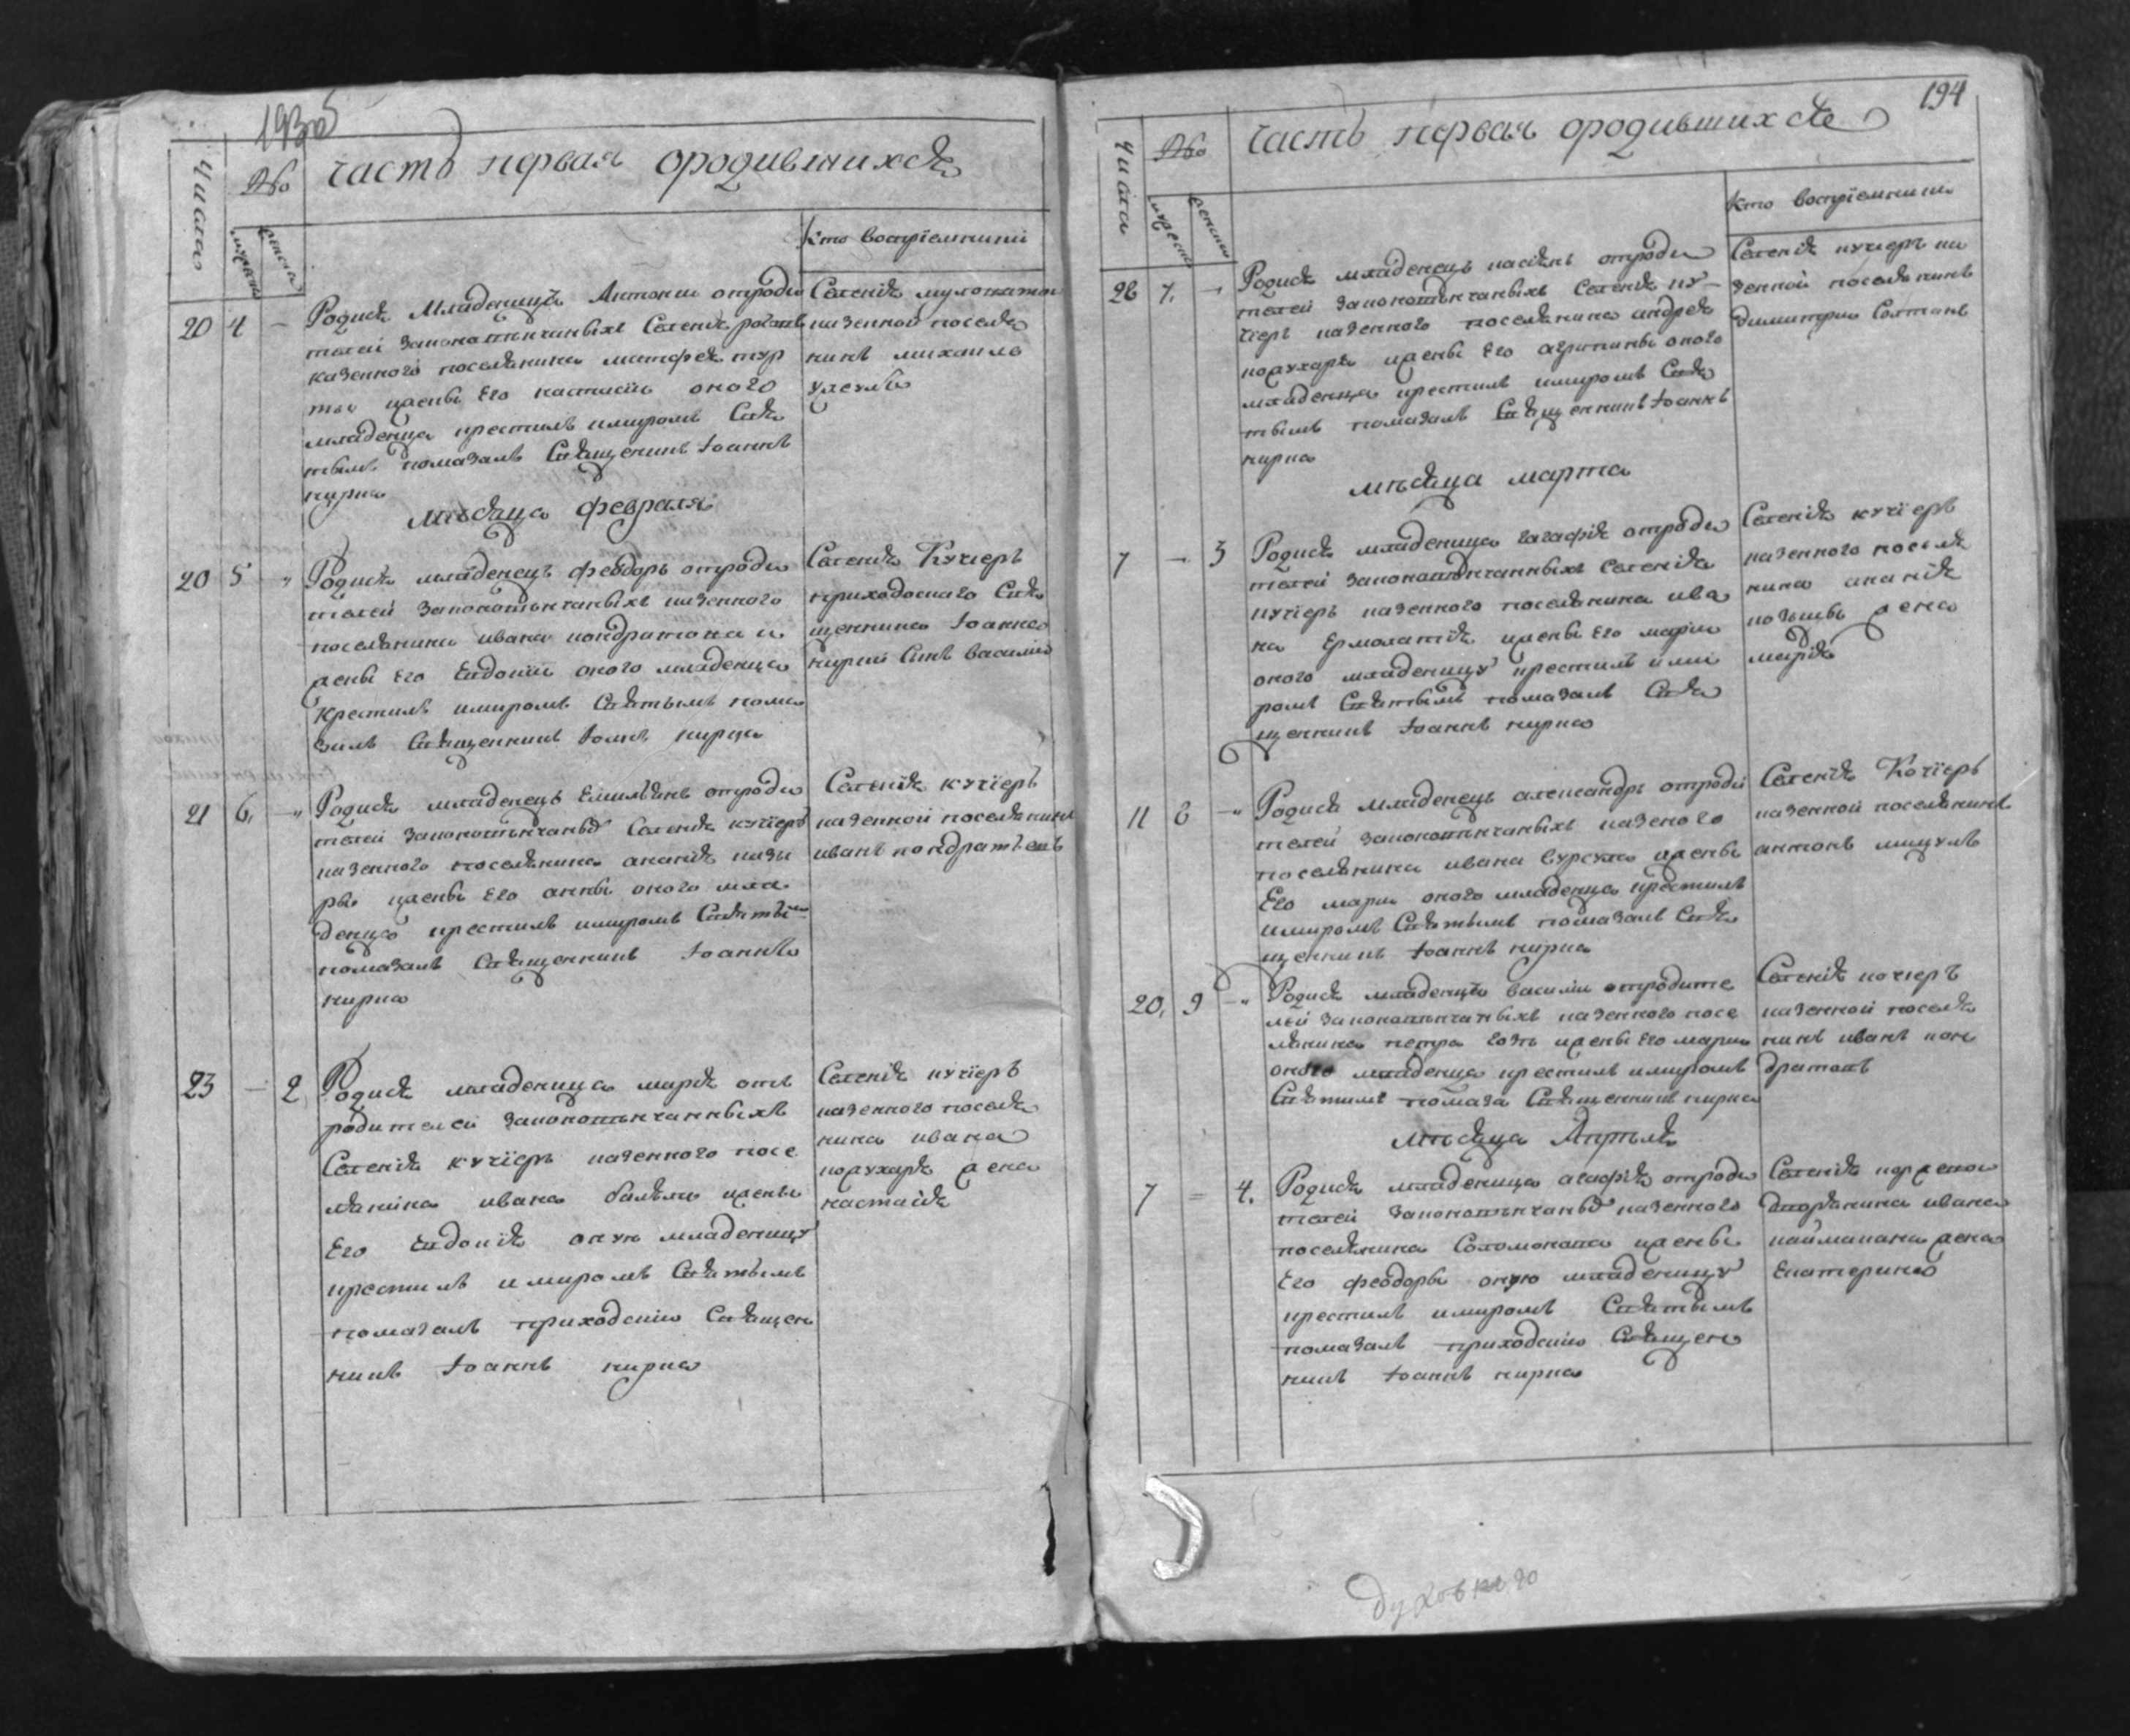 193об
Числа
№
часть первая ородившихся
Кто восприемники
20 4 — Родися Младенецъ Антонии отроди
телей законовѣнчаныхъ Селенія
казенного поселянина матфея тур
жены Его настасіи оного
младенца крестилъ имиромъ Свя
тымъ помазалъ Священникъ Іоаннъ
кирка
Селенія
казенной поселя
нинъ михаилъ
мѣсяца февраля
20 5 „ Родися младенецъ феодоръ отроди
телей законовѣнчаныхъ казенного
поселянина ивана кондратова и
жены Его Евдокіи оного младенца
крестилъ имиромъ Святымъ пома
залъ Священникъ Іоанъ кирка
Селенія Кучієръ
приходскаго Свя
щенника Іоанна
кирки Синъ василии
21 6, —„ Родися младенецъ Емильянъ отроди
телей законовѣнчаны Селенія кучіеръ
казенного поселянина ананія
ры жены Его анны оного мла
денца крестилъ имиромъ Святы
помазалъ Священникъ Іоаннъ
кирка
Селенія кучіеръ
казенной поселянинъ
иванъ кондратьевъ
23 — 2 Родися младеница марія отъ
родителей законовѣнчанныхъ
Селенія кучіеръ казенного посе
лянина ивана жены
Его Евдокія оную младеницу
крестилъ имиромъ Святымъ
помазалъ приходскіи Священ
никъ Іоаннъ кирка
Селенія кучіеръ
казенного поселя
нина ивана
подухаря жена
настасія
194
Числа
№
часть первая ородившихся
Кто восприемники
26 7, — Родися младенецъ отроди
телей законовѣнчаныхъ Селенія ку-
чіеръ казенного поселянина андрея
подухаря жены Его агрипины оного
младенца крестилъ имиромъ Свя
тымъ помазалъ Священникъ Іоаннъ
кирка
Селенія кучіеръ ка
зенной поселянинъ
Димитрии Солтанъ
мѣсяца марта
7 — 3 Родися младеница агафія отроди
телей законовѣнчанныхъ Селенія
кучіеръ казенного поселянина ива
на Ермолатія жены Его маріи
оного младеницу крестилъ ими
ромъ Святымъ помазалъ Свя
щенникъ Іоаннъ кирка
Селенія кучіеръ
казенного поселя
нина ананія
жена
марія
11 8 —„ Родися младенецъ александръ отроди
телей законовѣнчаныхъ казеного
поселянина ивана жены
Его марии оного младенца крестилъ
имиромъ Святымъ помазалъ Свя
щенникъ Іоаннъ кирка
Селенія Кочіеръ
казенной поселянинъ
антонъ мицулъ
20, 9 —„ Родися младенецъ василии отродите
лей законовѣнчаныхъ казенного посе
лянина петра жены Его марии
оного младенца крестилъ имиромъ
Святимъ помаза Священникъ кирка
Селенія кочіеръ
казенной поселя
нинъ иванъ кон
дратовъ
мѣсяца Априля
7 = 4. Родися младеница агафія отроди
телей законовѣнчаны казенного
поселянина Соломонана жены
Его феодоры оную младеницу
крестилъ имиромъ Святымъ
помазалъ приходскіи Священ
никъ Іоаннъ кирка
Селенія
дворянина ивана
наймана жена
Екатерина